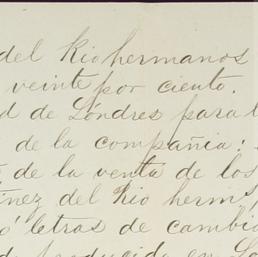 del Rio hermanos
veinte por ciento.
d de Londres para l
de la compañia:
de la venta de los
inez del Rio herms,
ó letras de cambi
producida en Lo